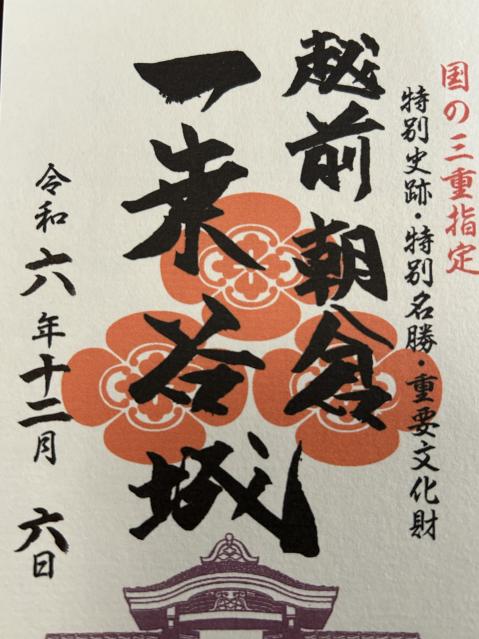 国の三重指定
特別史跡・特別名勝・重要文化財
越前朝倉
一乗谷城
令和六年十二月六日